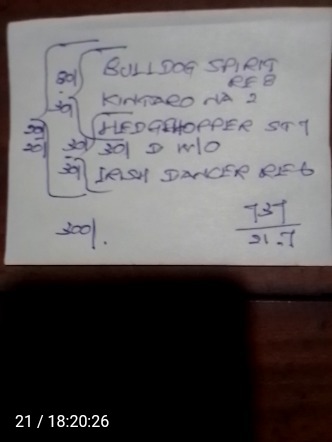 BULLDOG SPIRIT
RE8
KINTARO NA 2
HEDGEHOPPER ST 7
30/ D W/O
IRISH DANCER RE6
300/.
737
21.7
21 / 18:20:26